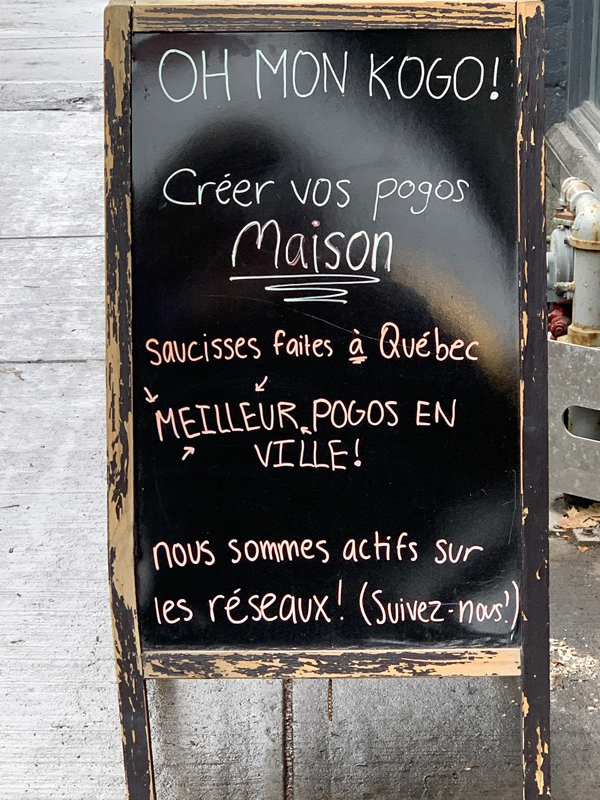 OH MON KOGO!
Créer vos pogos
Maison
saucisses faites à Québec
MEILLEUR POGOS EN
VILLE!
nous sommes actifs sur
les réseaux! (Suivez-nous!)